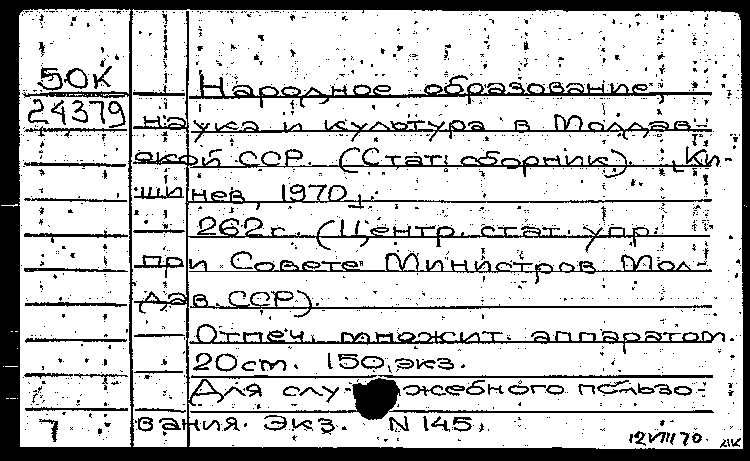 50К Народное образование,
24379 наука и культура в Молдав-
ской ССР. (Стат. сборник). [Ки-
шинев, 1970].
262с. (Центр. стат. упр.
при Совете Министров Мол-
дав. ССР).
Отпеч. множит. аппаратом.
20см. 150 экз.
Для служебного пользо-
7 вания. Экз. N 145.
12VIII70